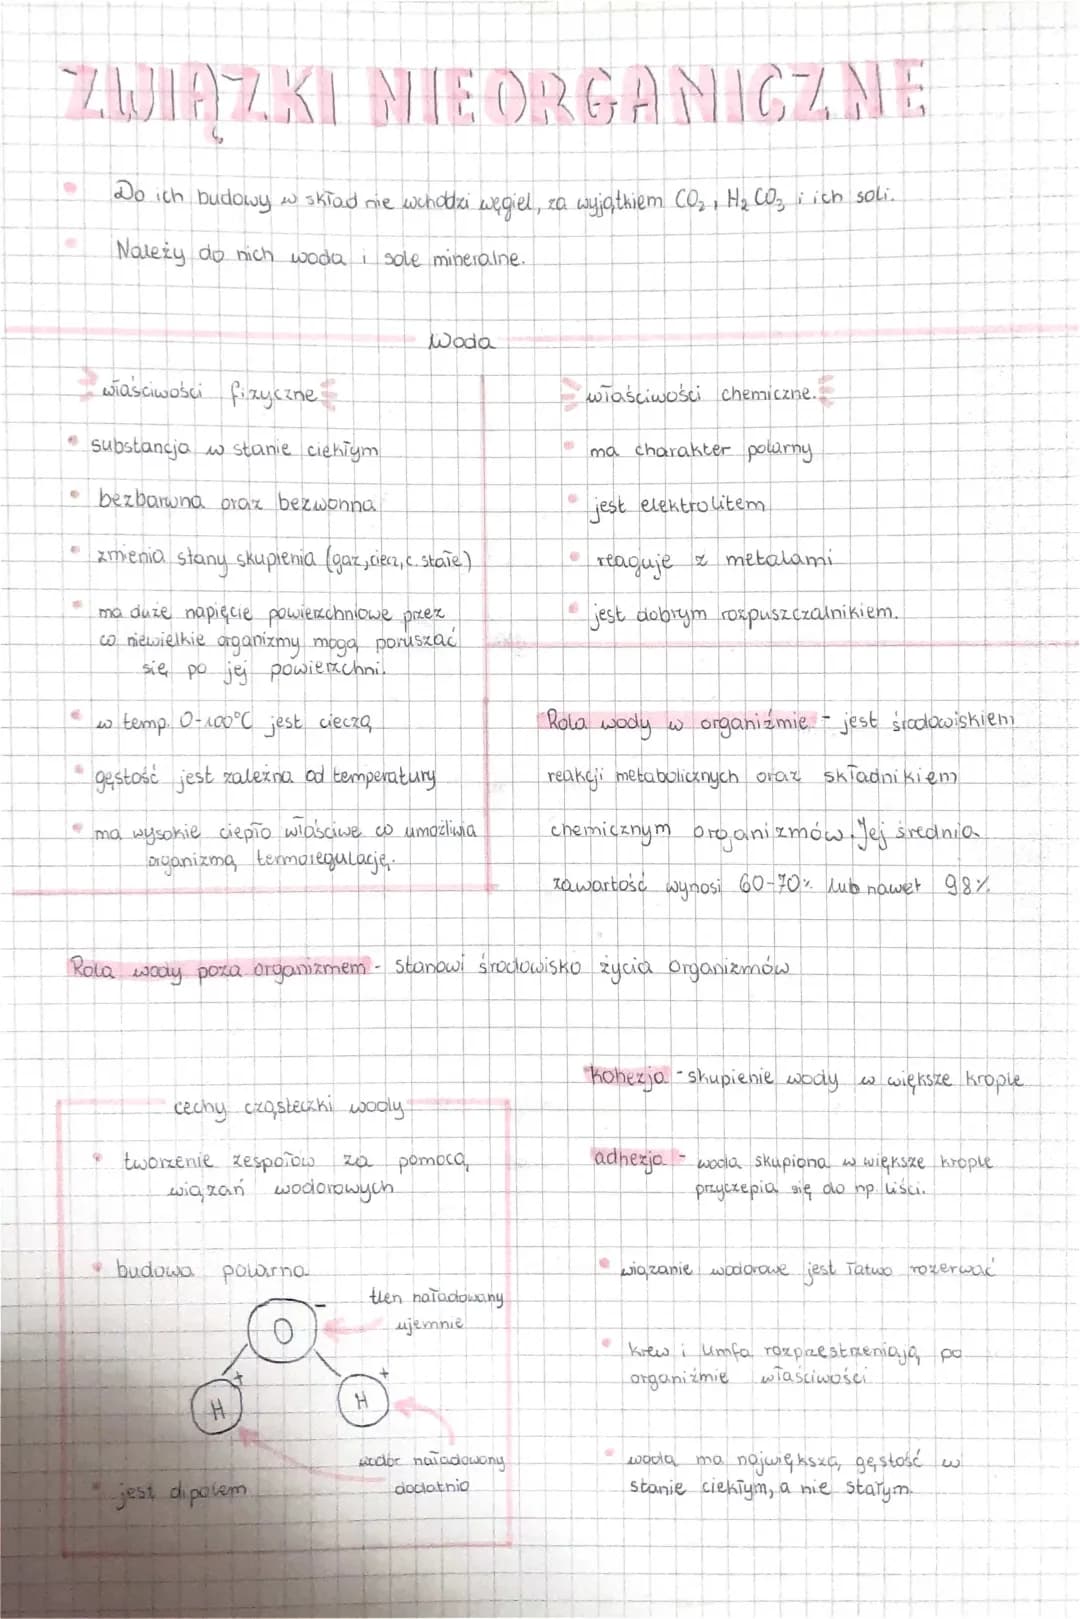 ZWIĄZKI NIEORGANICZNE
Do ich budowy w skład nie wchodzi węgiel, za wyjątkiem CO₂, H₂CO₃ i ich soli.
Należy do nich woda i sole mineralne.
Woda
właściwości fizyczne
substancja w stanie ciekłym
bezbarwna oraz bezwonna
zmienia stany skupienia (gaz, ciecz, c. stałe)
ma duże napięcie powierzchniowe przez
co niewielkie organizmy mogą poruszać
się po jej powierzchni.
w temp. 0-100°C jest cieczą
gęstość jest zależna od temperatury
ma wysokie ciepło właściwe co umożliwia
organizmą termoregulację.
właściwości chemiczne.
ma charakter polarny
jest elektrolitem
reaguje z metalami
jest dobrym rozpuszczalnikiem.
Rola wody w organiźmie - jest środowiskiem
reakcji metabolicznych oraz składnikiem
chemicznym organizmów. Jej średnia
zawartość wynosi 60-70% lub nawet 98%.
Rola wody poza organizmem - stanowi środowisko życia organizmów
cechy cząsteczki wody
tworzenie zespołów za pomocą
wiązań wodorowych
budowa polarna
tlen naładowany
ujemnie
O -
H +
H +
wodór naładowany
dodatnio
jest dipolem
kohezja - skupienie wody w większe krople
adhezja - woda skupiona w większe krople
przyczepia się do np. liści.
wiązanie wodorowe jest łatwo rozerwać
krew i limfa rozprzestrzeniają po
organiźmie właściwości
woda ma największą gęstość w
stanie ciekłym, a nie stałym.